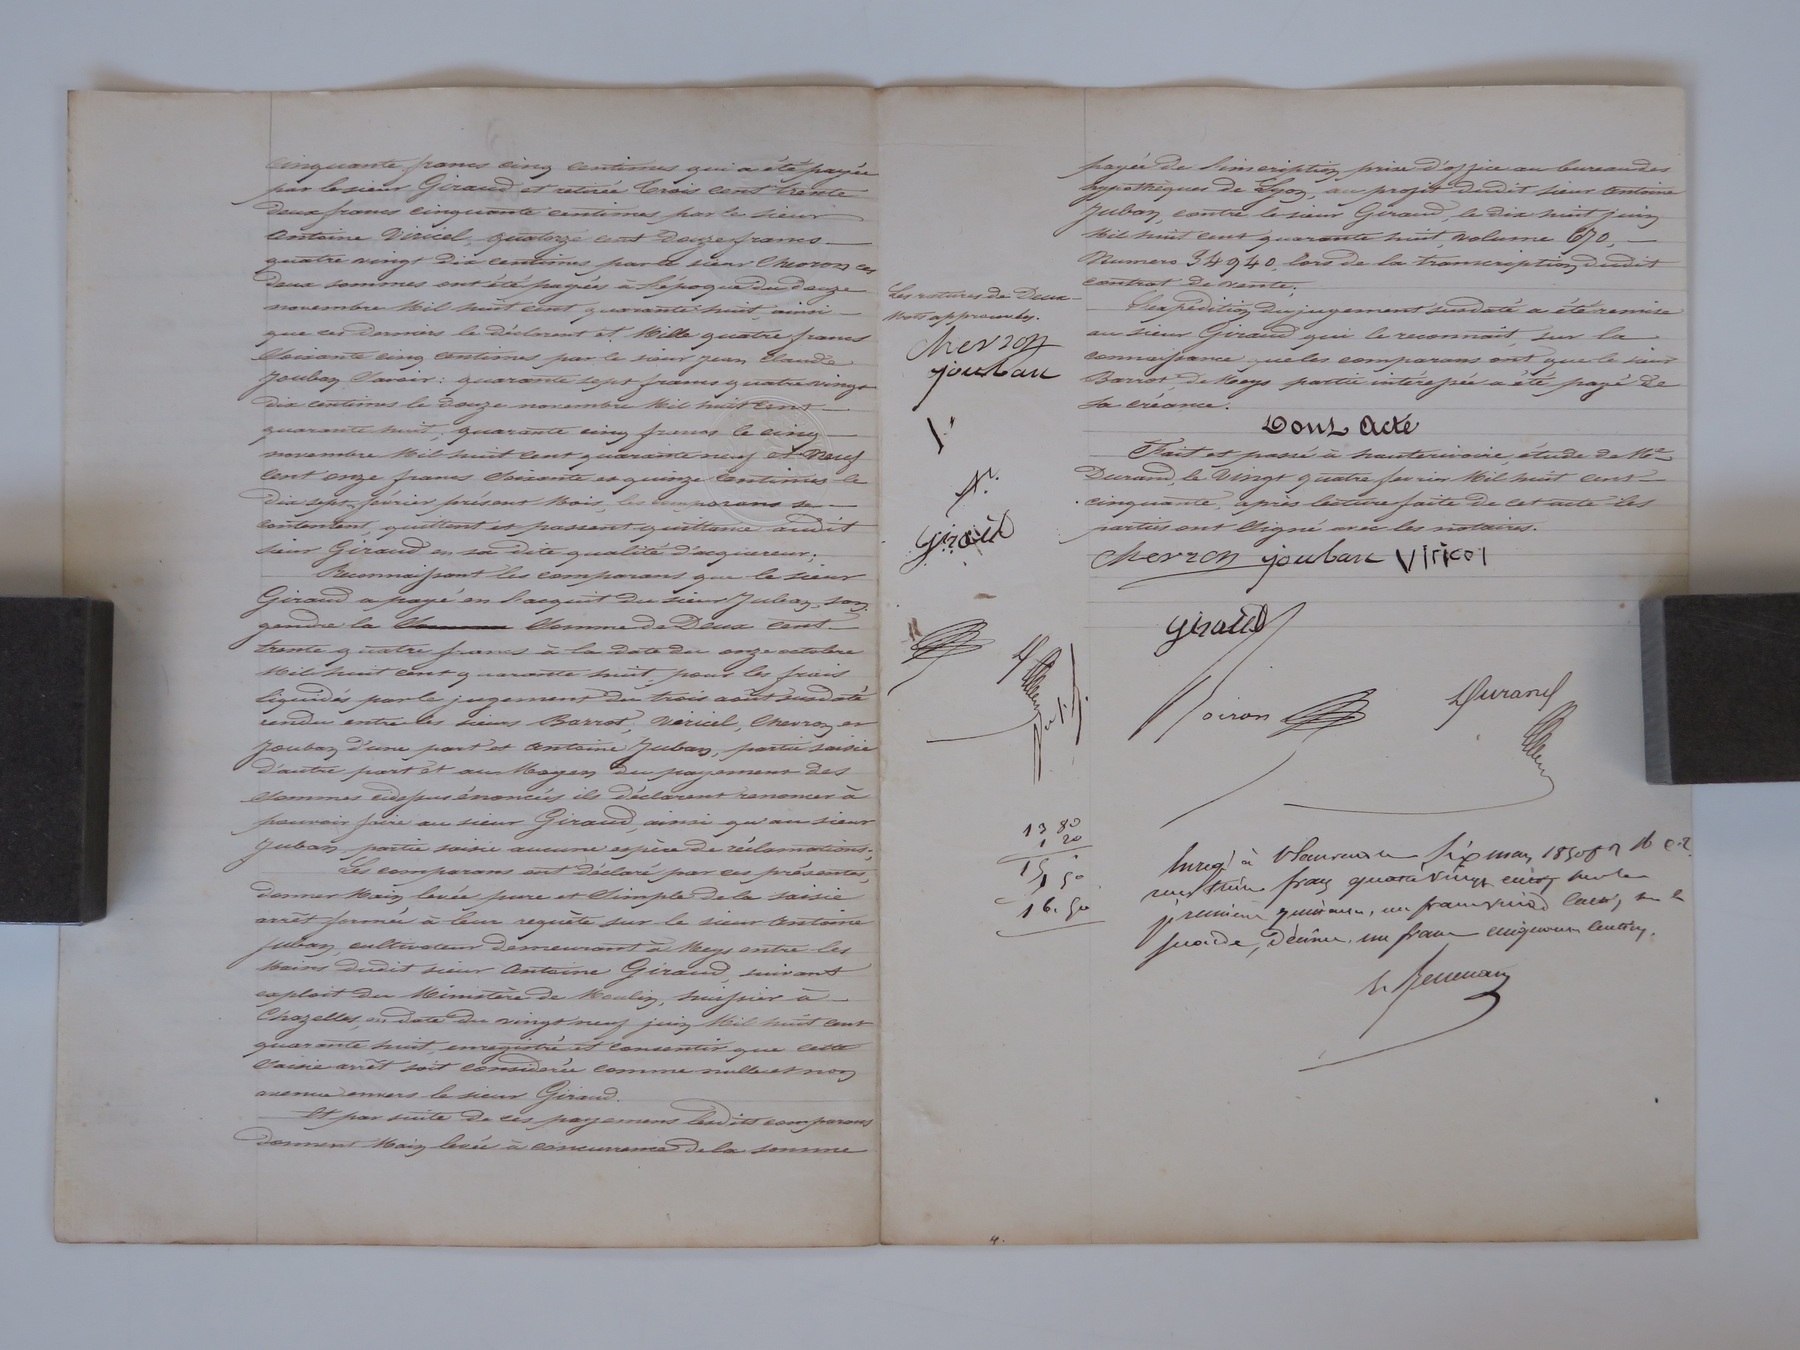 cinquante francs cinq centimes qui a été payée
par le sieur Giraud et retirée trois cent trente
deux francs cinquante centimes par le sieur
Antoine Viricel, quatorze cent douze francs
quatre vingt dix centimes par le sieur Chevron ces
deux sommes ont été payées à l'époque du douze
novembre Mil huit cent quarante huit, ainsi
que ces derniers le déclarent et Mille quatre francs
soixante cinq centimes par le sieur Jean Claude
Jouban Savoir: quarante sept francs quatre vingt
dix centimes le douze novembre Mil huit cent
quarante huit, quarante cinq francs le cinq
novembre Mil huit cent quarante neuf et Neuf
cent onze francs soixante et quinze Centimes le
dix sept février présent Mois, les comparans se
contentent, quittent et passent quittance audit
sieur Giraud en sa dite qualité d'acquereur;
Reconnaissant les comparans que le sieur
Giraud a payé en l'acquit du sieur Juban, son
gendre la Somme de Deux Cent
trente quatre francs à la date du onze octobre
Mil huit cent quarante huit, pour les frais
liquidés par le jugement du trois août susdaté
rendu entre les sieurs Barrot, Viricel, Chevron et
Jouban d'une part et Antoine Juban, partie saisie
d'autre part et au Moyen du payement des
Sommes cidessus énoncées ils déclarent renoncer à
pouvoir faire au sieur Giraud, ainsi qu'au sieur
Juban partie saisie aucune espèce de réclamations;
Les comparans ont déclaré par ces présentes,
donner Main levée pure et Simple de la saisie
arrêt formée à leur requête sur le sieur Antoine
Juban, cultivateur demeurant à Meys entre les
Mains dudit sieur Antoine Giraud, suivant
exploit du Ministère de Moulin, huissier à
Chazelles, en date du vingt neuf juin Mil huit cent
quarante huit, enregistré et consentir que cette
Saisie arrêt soit considérée comme nulle et non
avenue envers le sieur Giraud.
Et par suite de ces payemens lesdits comparans
donnent Main levée à concurrence de la somme
Les ratures de Deux
Mots approuvées.
Chevron
Jouban
V.
N.
Giraud
13 80
1 20
15 "
1 50
16. 50
payée de l'inscription prise d'office au bureau des
hypothèques de Lyon, au profit dudit sieur Antoine
Juban, contre le sieur Giraud, le dix huit juin
Mil huit cent quarante huit, volume 670,
Numero 34940, lors de la transcription dudit
contrat de vente;
L'expédition du jugement susdaté a été remise
au sieur Giraud qui le reconnaît, sur la
connaissance que les comparans ont que le sieur
Barrot, de Meys partie intéressée a été payé de
sa créance.
Dont Acte
Fait et passé à hauterivoire, étude de Me
Durand, le Vingt quatre fevrier Mil huit cent
cinquante, après lecture faite de cet acte les
parties ont Signé avec les notaires.
Chevron Jouban Viricel
Giraud
Poiron Durand
Enregé à St Laurent le six mars 1850
franc cinquante centimes.